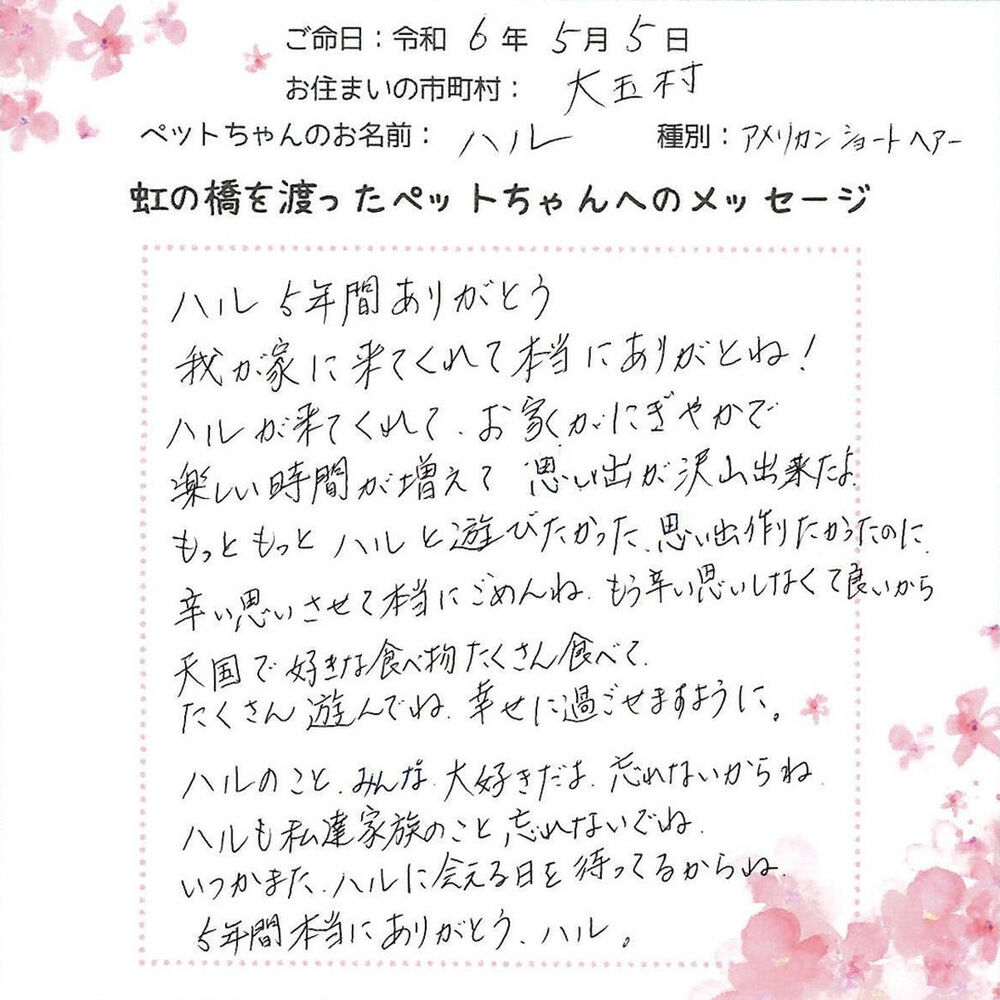 ご命日：令和 6 年 5 月 5 日
お住まいの市町村： 大玉村
ペットちゃんのお名前： ハル 種別：アメリカンショートヘアー
虹の橋を渡ったペットちゃんへのメッセージ
ハル 5年間ありがとう
我が家に来てくれて本当にありがとね！
ハルが来てくれて、お家がにぎやかで
楽しい時間が増えて 思い出が沢山出来たよ
もっともっと ハルと遊びたかった、思い出作りたかったのに、
辛い思いさせて本当にごめんね、もう辛い思いしなくて良いから
天国で好きな食べ物たくさん食べて、
たくさん遊んでね、幸せに過ごせますように。
ハルのこと、みんな、大好きだよ、忘れないからね、
ハルも私達家族のこと、忘れないでね、
いつかまた、ハルに会える日を待ってるからね、
5年間本当にありがとう、ハル。